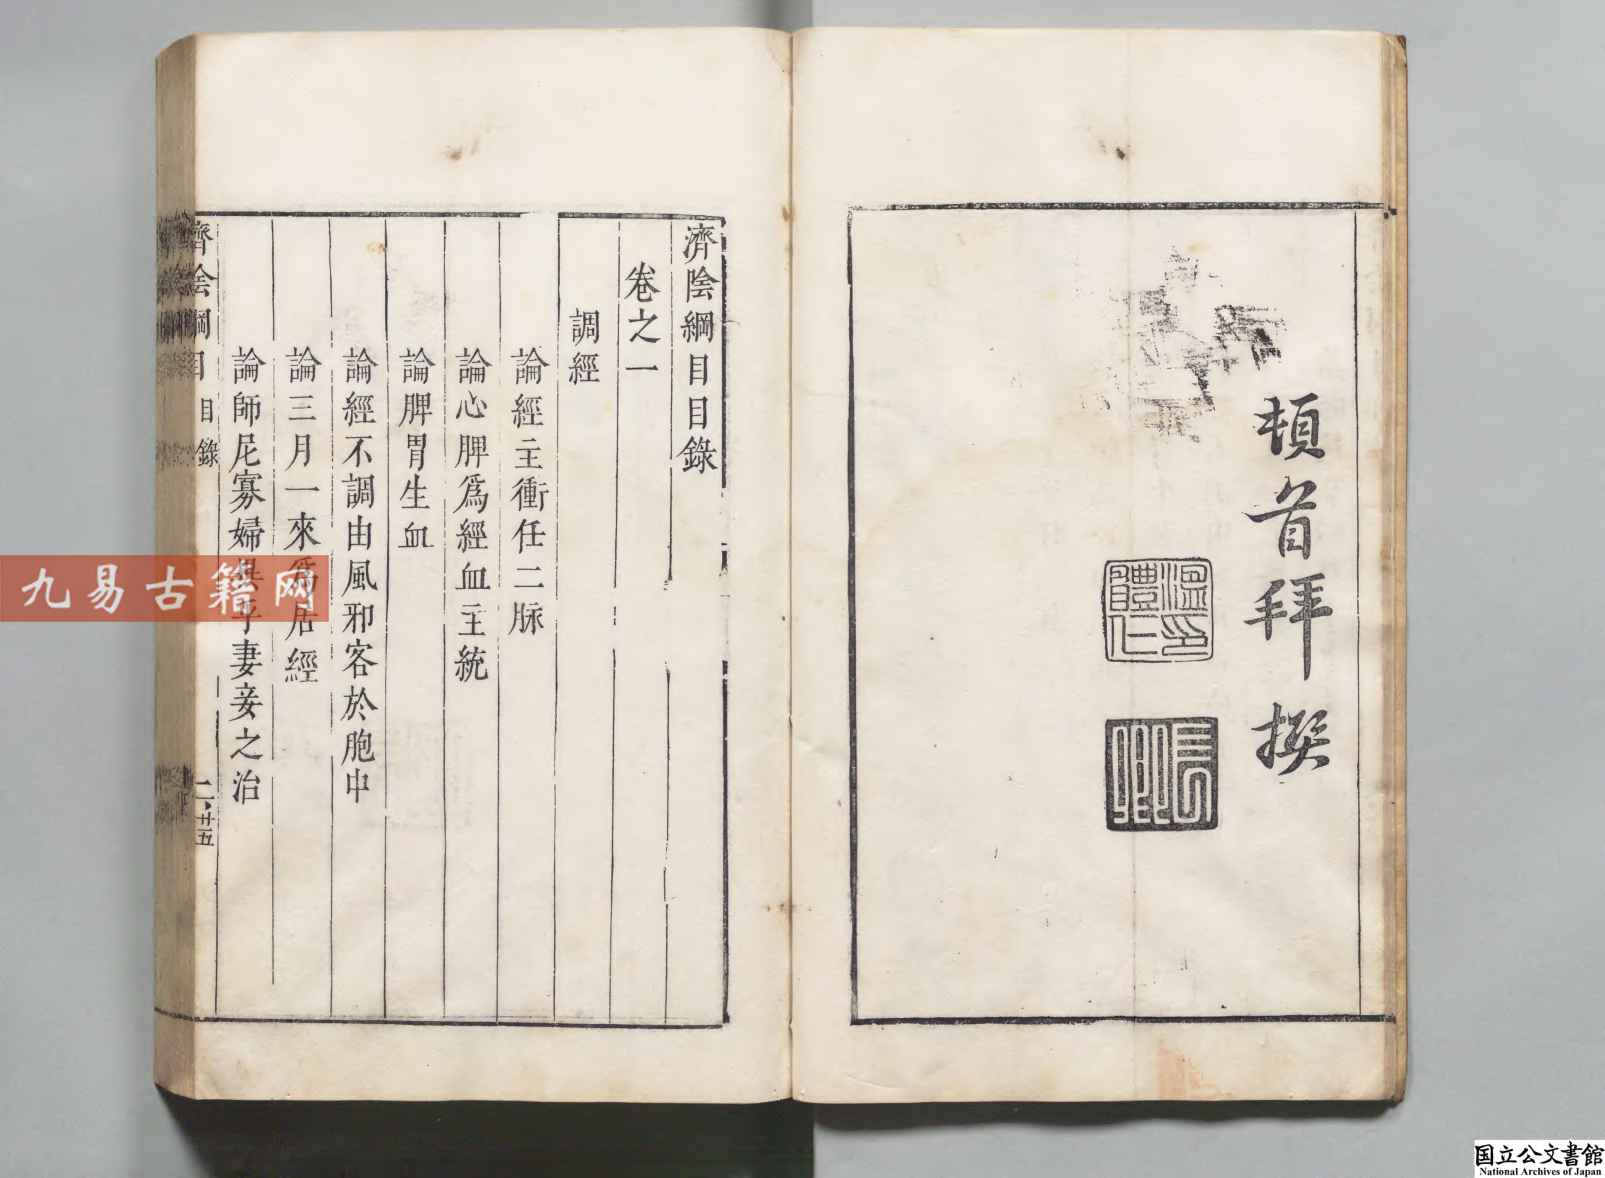 頓首拜撰
溫體仁印
長卿
濟陰綱目目錄
卷之一
調經
論經主衝任二脉
論心脾爲經血主統
論脾胃生血
論經不調由風邪客於胞中
論三月一來爲居經
論師尼寡婦異乎妻妾之治
濟陰綱目 目錄
二 廿五
九易古籍网
国立公文書館
National Archives of Japan